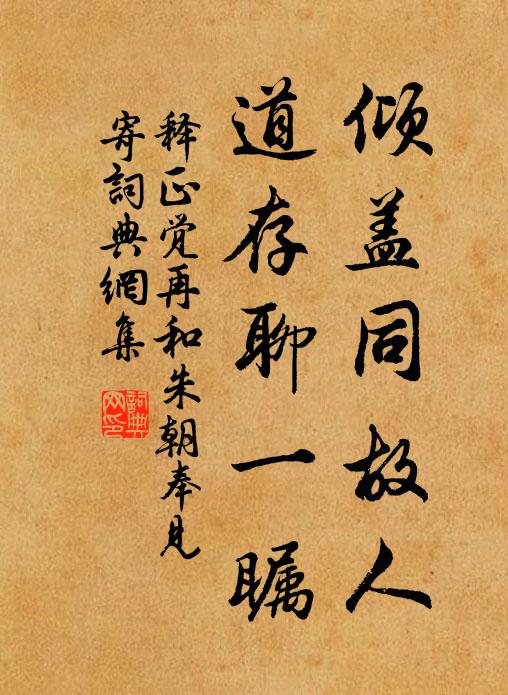 倾盖同故人
道存聊一瞩
释正觉再和朱朝奉见
寄词典網集
詞典网印